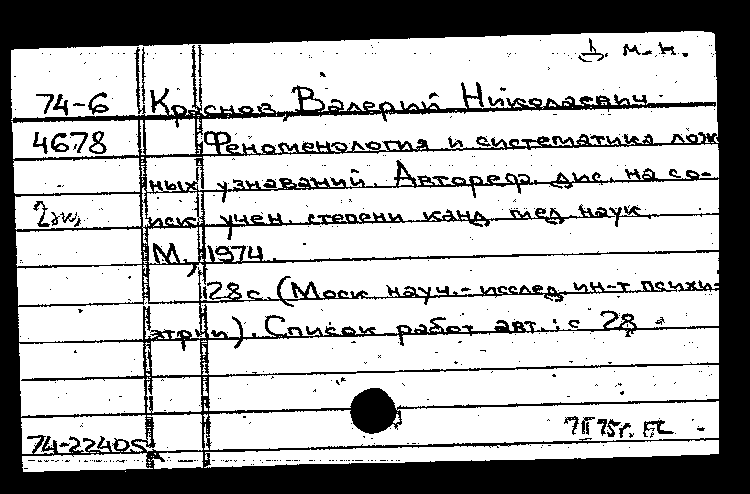 м.н.
74-6 Краснов, Валерий Николаевич
4678 Феноменология и систематика лож
ных узнаваний. Автореф. дис. на со-
2 эк. иск. учен. степени канд. мед. наук.
М., 1974.
28 с. (Моск. науч.-исслед. ин-т психи-
атрии). Список работ авт.: с 28
74-22405
7 II 75г.